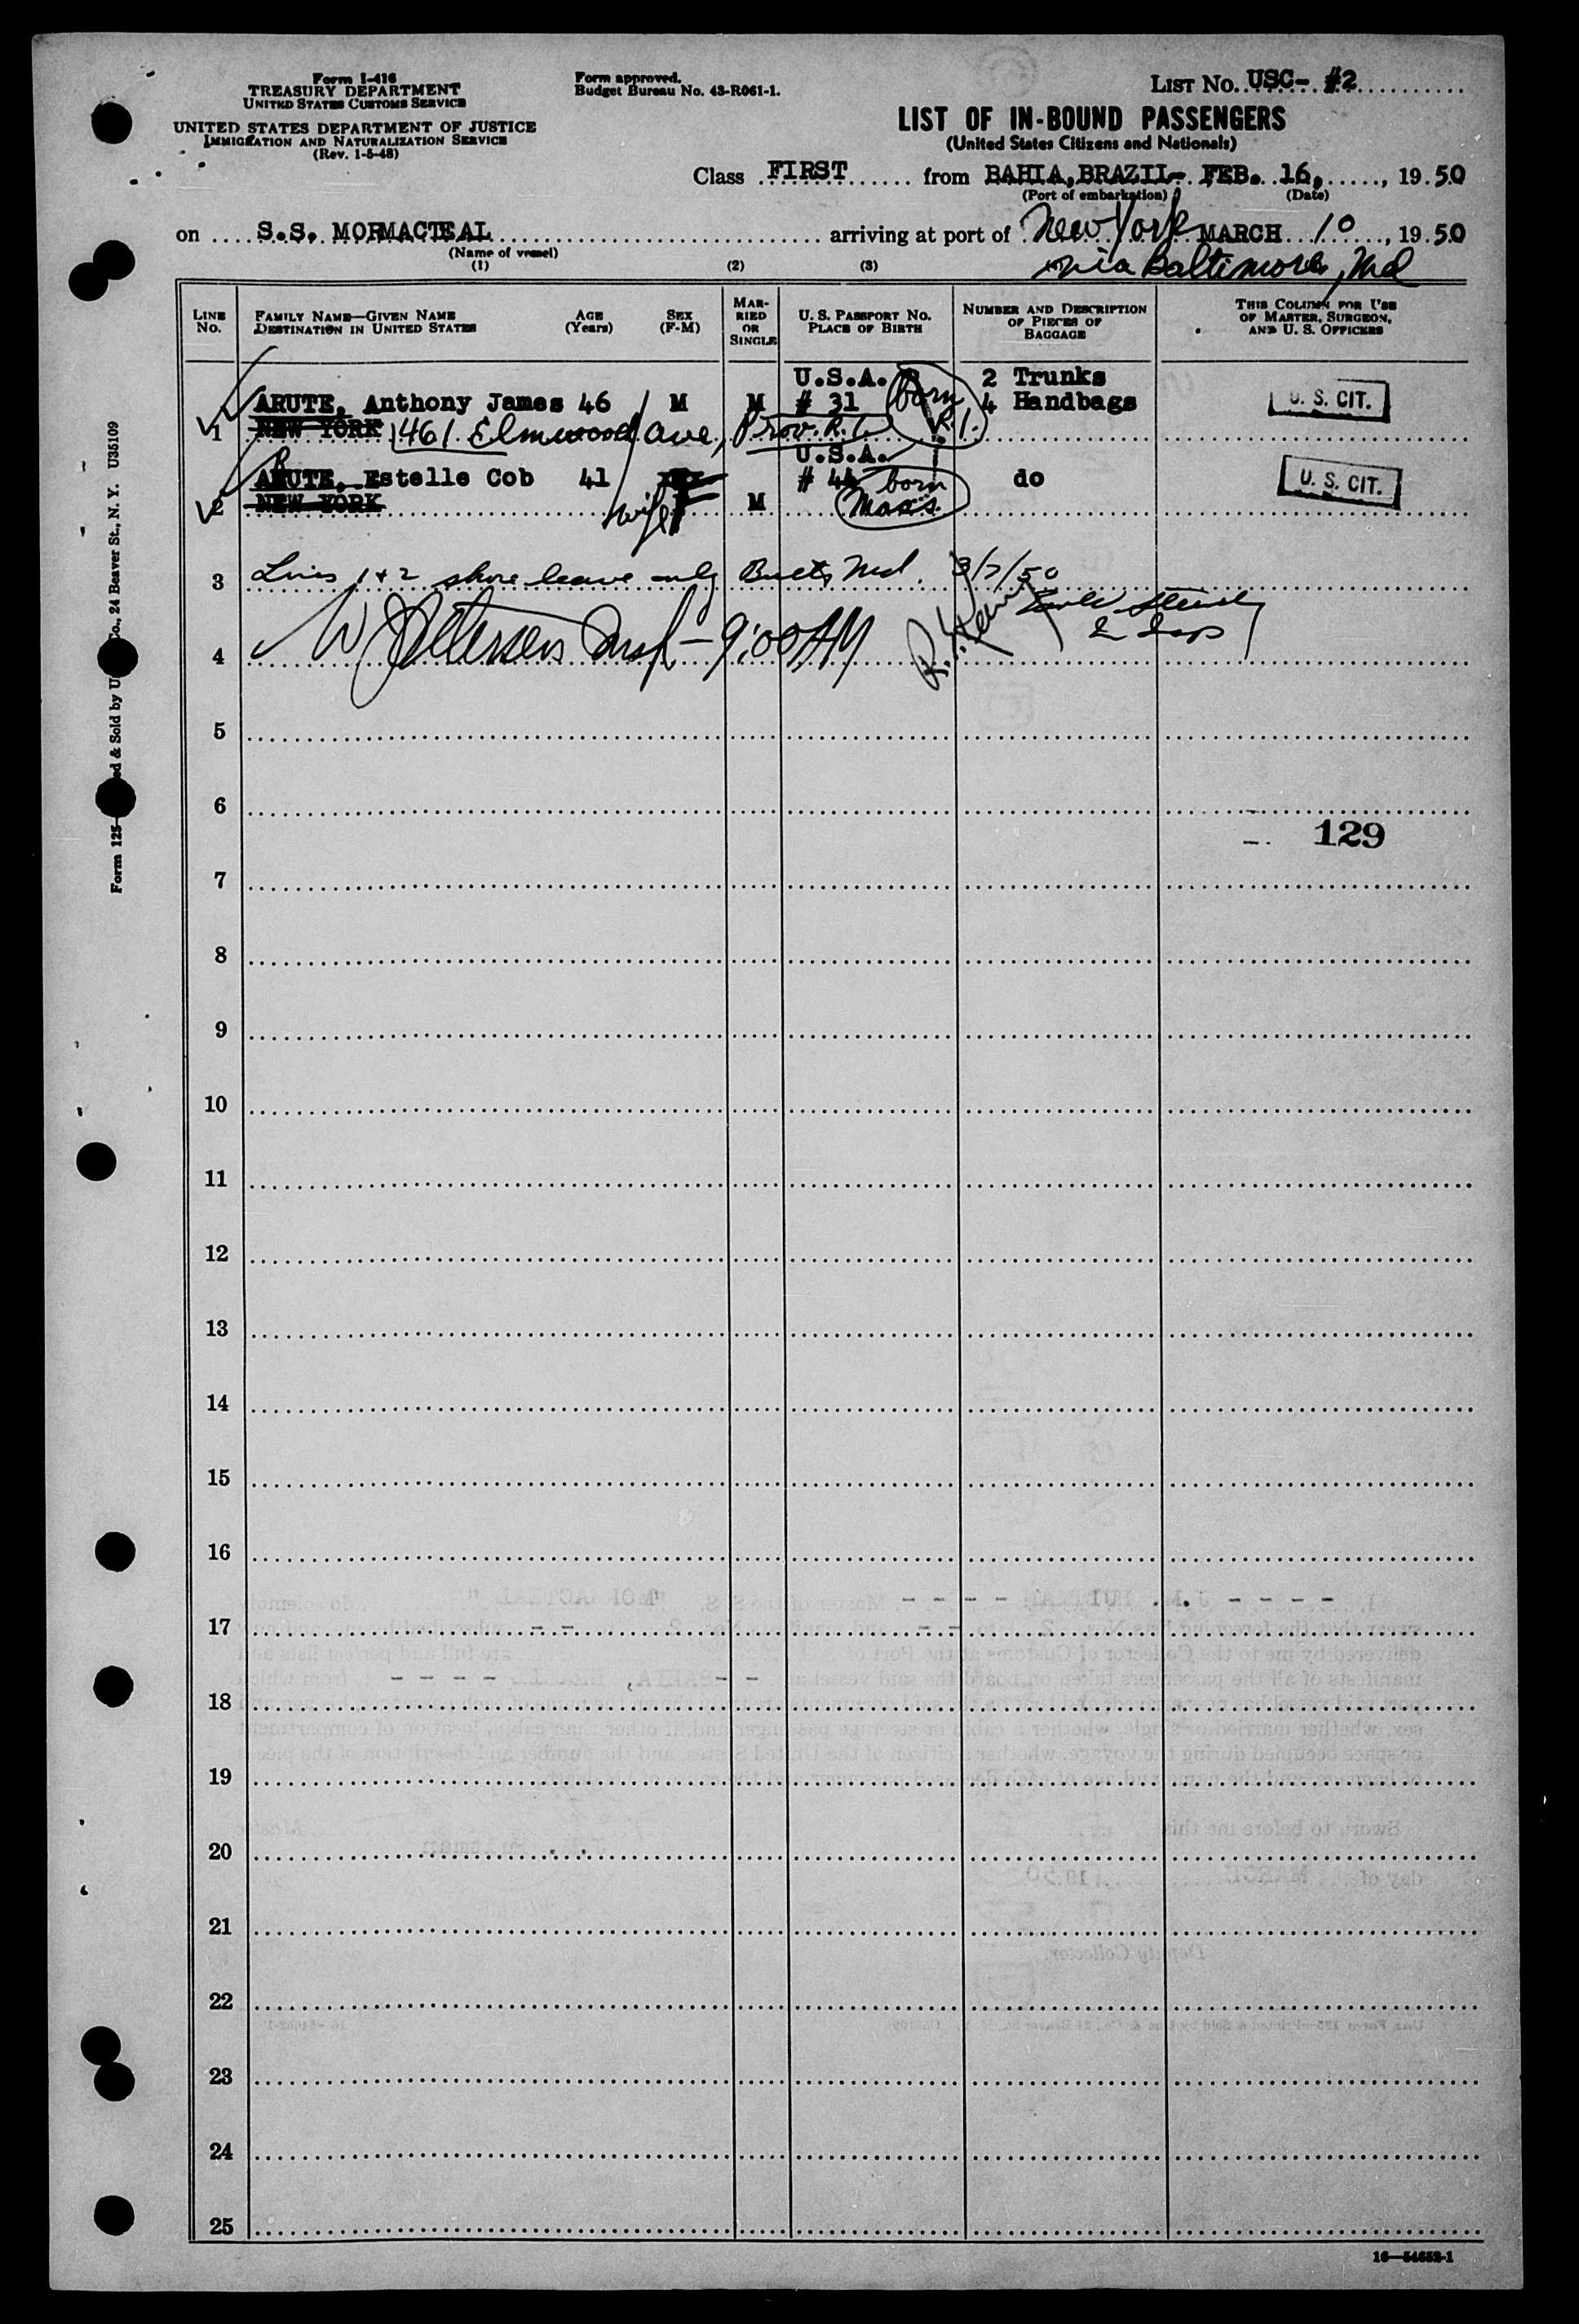 Form I-416
TREASURY DEPARTMENT
UNITED STATES CUSTOMS SERVICE
UNITED STATES DEPARTMENT OF JUSTICE
IMMIGRATION AND NATURALIZATION SERVICE
(Rev. 1-5-48)
Form approved.
Budget Bureau No. 43-R061-1.
LIST No. USC- #2
LIST OF IN-BOUND PASSENGERS
(United States Citizens and Nationals)
Class FIRST from BAHIA, BRAZIL- FEB. 16, , 19 50
(Port of embarkation) (Date)
on S.S. MORMACTEAL arriving at port of New York MARCH 10, 19 50
(Name of vessel)
via Baltimore, Md
(1) (2) (3)
LINE No. FAMILY NAME—GIVEN NAME DESTINATION IN UNITED STATES AGE (Years) SEX (F-M) MARRIED OR SINGLE U. S. PASSPORT NO. PLACE OF BIRTH NUMBER AND DESCRIPTION OF PIECES OF BAGGAGE THIS COLUMN FOR USE OF MASTER, SURGEON, AND U. S. OFFICERS
U.S.A. 2 Trunks
ARUTE, Anthony James 46 M M # 31 born R.I. 4 Handbags U. S. CIT.
1 NEW YORK 1461 Elmwood Ave, Prov. R.I.
U.S.A.
ARUTE, Estelle Cob 41 F # 44 born do U. S. CIT.
2 NEW YORK wife M Mass.
3 Lines 1 & 2 shore leave only Balto Md. 3/7/50
4 W Petersen Insp - 9:00 AM
5
6
129
7
8
9
10
11
12
13
14
15
16
17
18
19
20
21
22
23
24
25
16—54652-1
Co., 24 Beaver St., N. Y. U35109